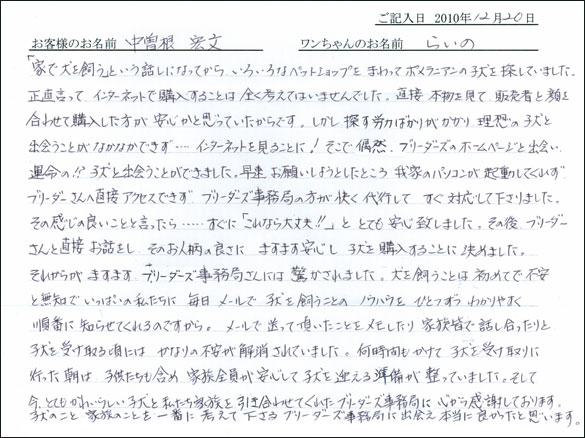 ご記入日 2010年12月20日
お客様のお名前 中曽根 宏文 ワンちゃんのお名前 らいの
「家で犬を飼う」という話しになってから いろいろなペットショップを まわって ポメラニアンの子犬を探していました。
正直言って インターネットで購入することは 全く考えてはいませんでした。直接 本物を見て 販売者と顔を
合わせて購入した方が 安心かと思っていたからです。しかし 探す労力ばかりがかかり 理想の子犬と
出会うことが なかなかできず…. インターネットを見ることに! そこで偶然、ブリーダーズのホームページと出会い、
運命の!? 子犬と出会うことができました。早速 お願いしようとしたところ 我家のパソコンが 起動してくれず
ブリーダーさんへ直接アクセスできず、ブリーダーズ事務局の方が 快く 代行して すぐ対応して下さりました。
その感じの良いことと言ったら……すぐに「これなら大丈夫!!」と とても安心致しました。その後 ブリーダー
さんと直接お話をし そのお人柄の良さに ますます安心し 子犬を購入することに 決めました。
それからが ますます ブリーダーズ事務局さんには 驚かされました。犬を飼うことは 初めてで 不安
と無知でいっぱいの私たちに 毎日 メールで 子犬を飼うことの ノウハウを ひとつずつ わかりやすく
順番に 知らせてくれるのですから。メールで 送って頂いたことを メモしたり 家族皆で話し合ったりと
子犬を受け取る頃には かなりの不安が 解消されていました。何時間もかけて 子犬を受け取りに
行った朝は 子供たちも含め 家族全員が 安心して 子犬を迎える準備が 整っていました。そして
今、とてもかわいらしい子犬と私たち家族を 引き合わせてくれたブリーダーズ事務局に 心から感謝しております。
子犬のこと 家族のことを 一番に 考えて下さる ブリーダーズ事務局に出会え 本当に良かったと思います。